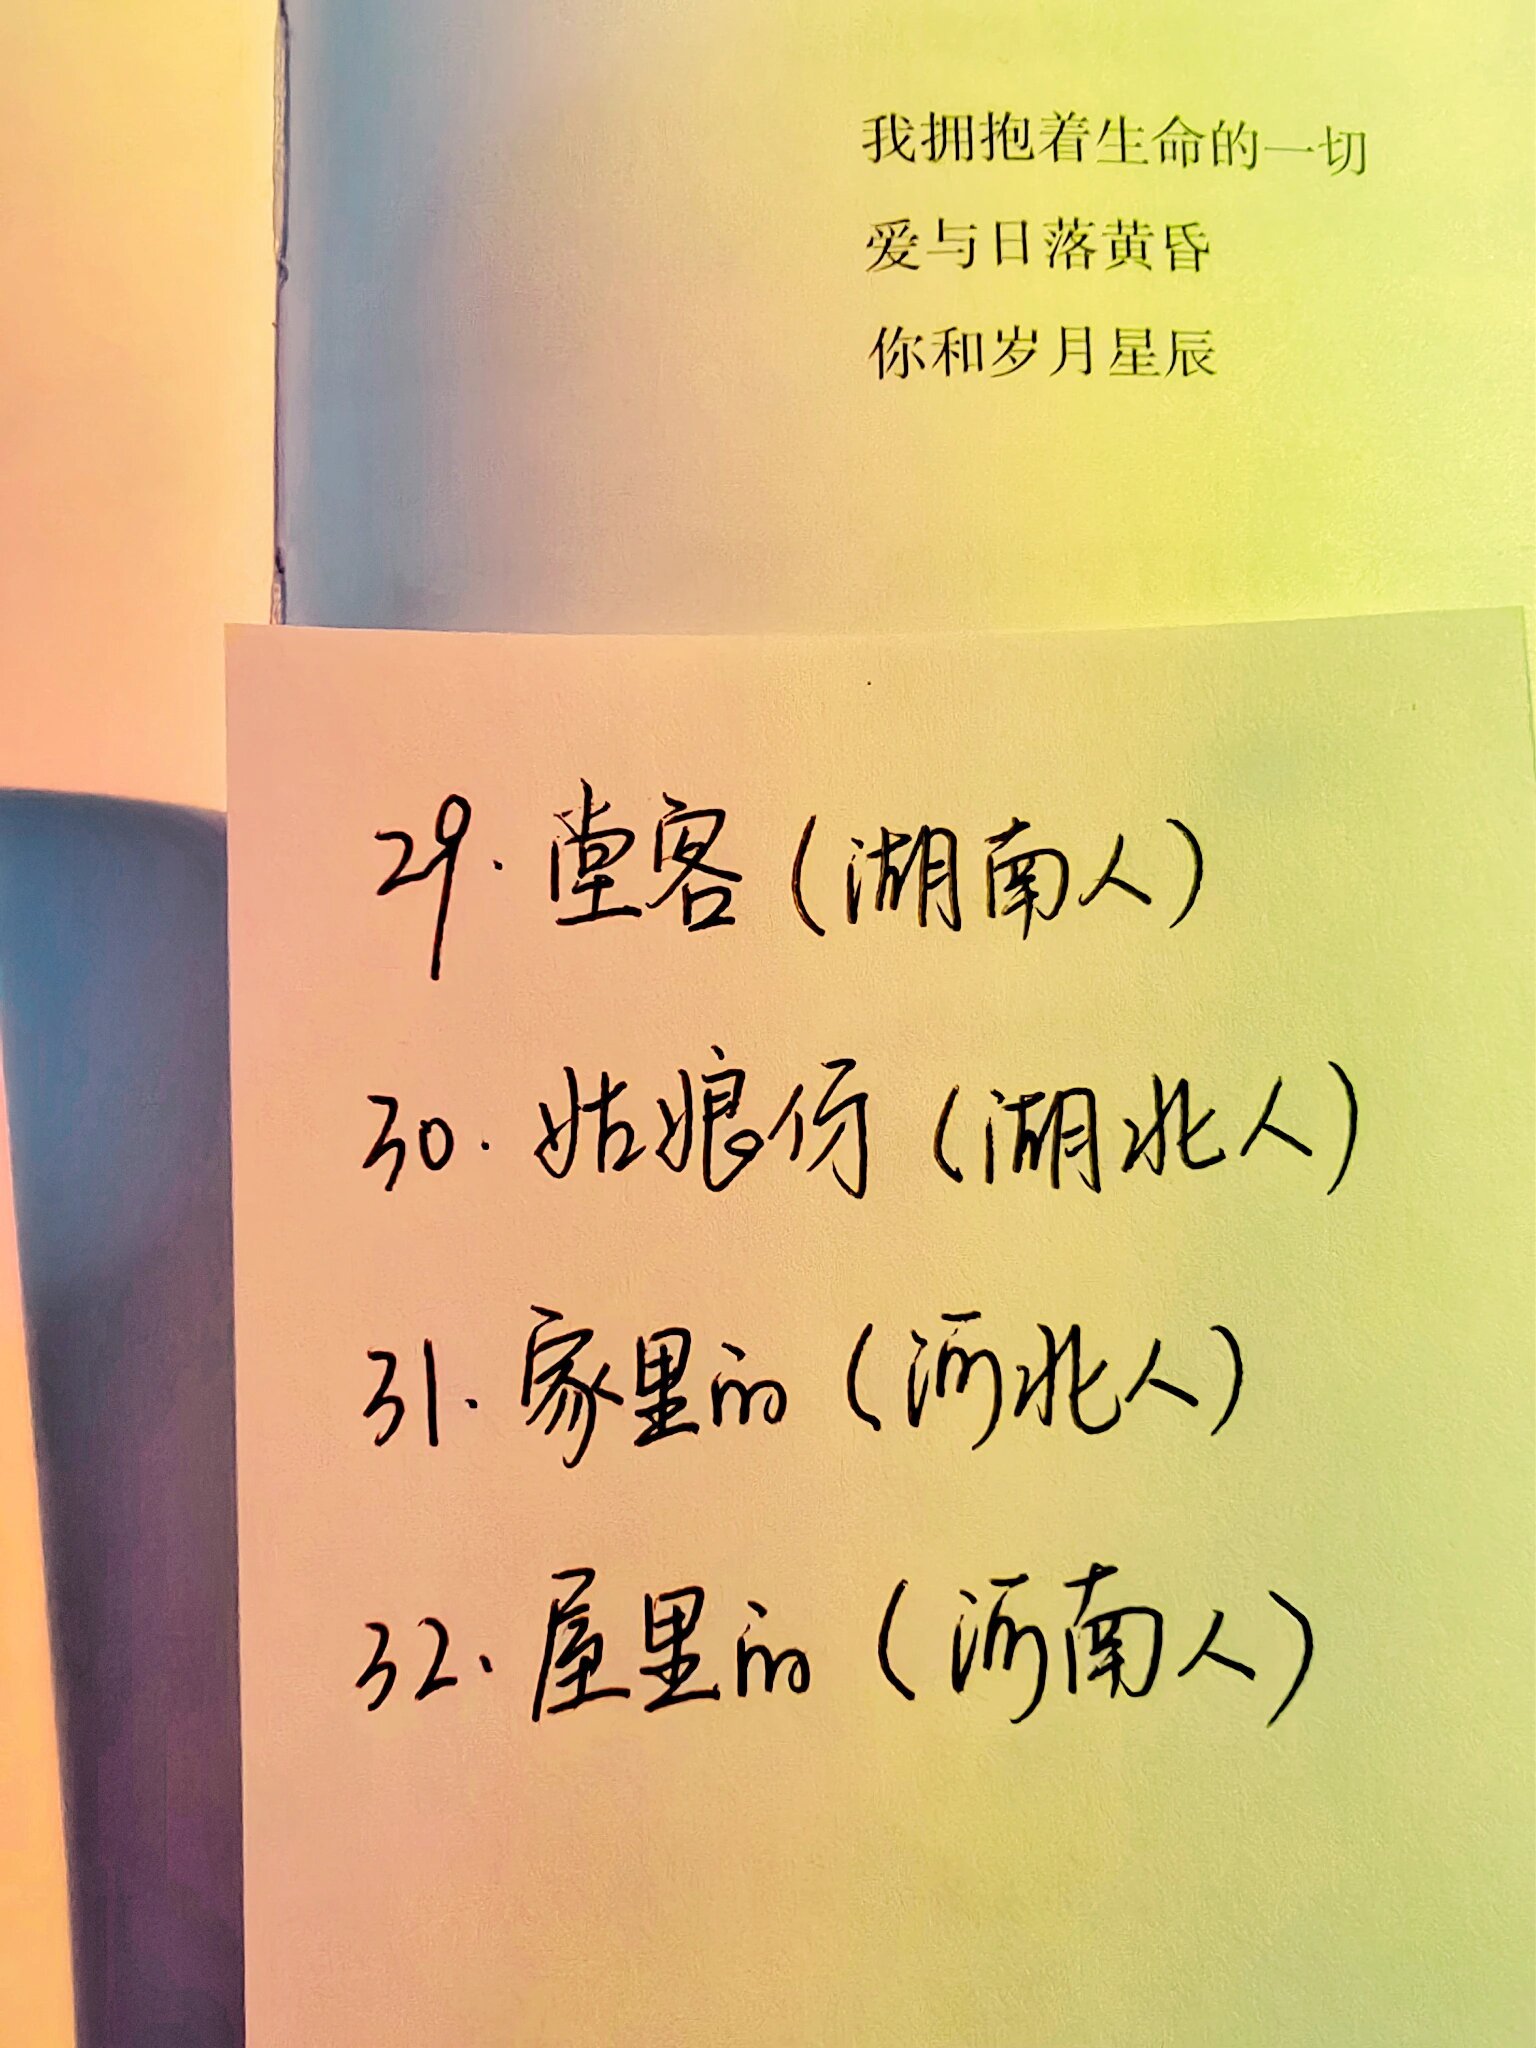 我拥抱着生命的一切
爱与日落黄昏
你和岁月星辰
29. 堂客（湖南人）
30. 姑娘伢（湖北人）
31. 家里的（河北人）
32. 屋里的（河南人）